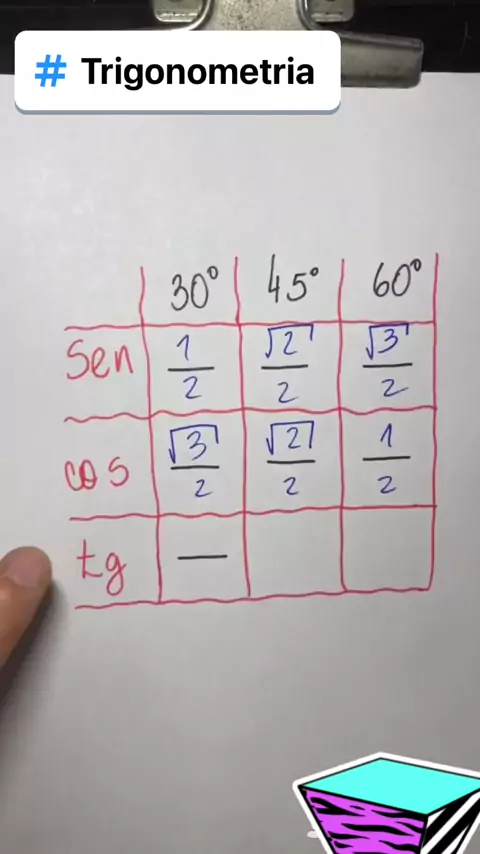 # Trigonometria
30° 45° 60°
Sen 1/2 √2/2 √3/2
cos √3/2 √2/2 1/2
tg —